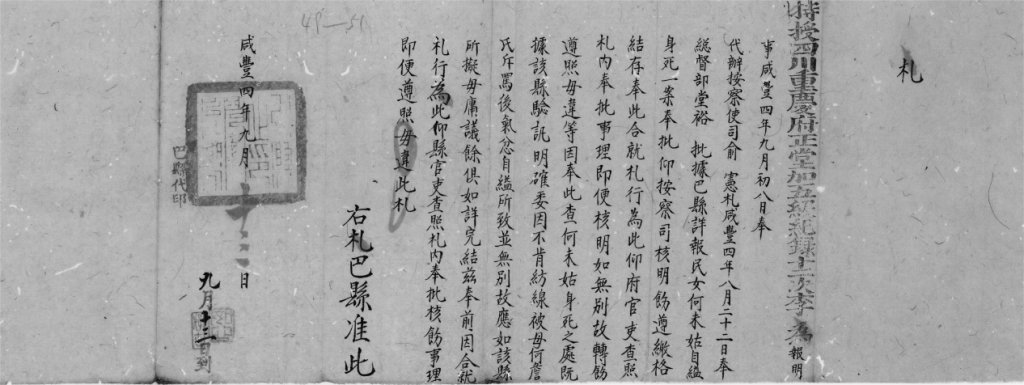 札
特授四川重慶府正堂加五級紀錄十二次李 為 報明
事咸豐四年九月初八日奉
代辦按察使司俞 憲札咸豐四年八月二十二日奉
總督部堂裕 批據巴縣詳報民女何未姑自縊
身死一案奉批仰按察司核明飭遵繳格
結存奉此合就札行為此仰府官吏查照
札內奉批事理即便核明如無別故轉飭
遵照毋違等因奉此查何未姑身死之處既
據該縣驗訊明確委因不肯紡線被母何詹
氏斥罵後氣忿自縊所致並無別故應如該縣
所擬毋庸議餘俱如詳完結茲奉前因合就
札行為此仰縣官吏查照札內奉批核飭事理
即便遵照毋違此札
右札巴縣准此
咸豐四年九月十二日
巴縣代印
九月十三到
49-51